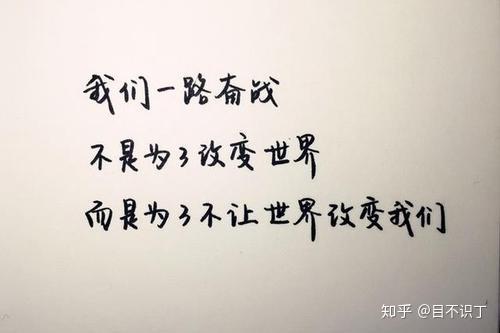 我们一路奋战
不是为了改变世界
而是为了不让世界改变我们
知乎 @目不识丁